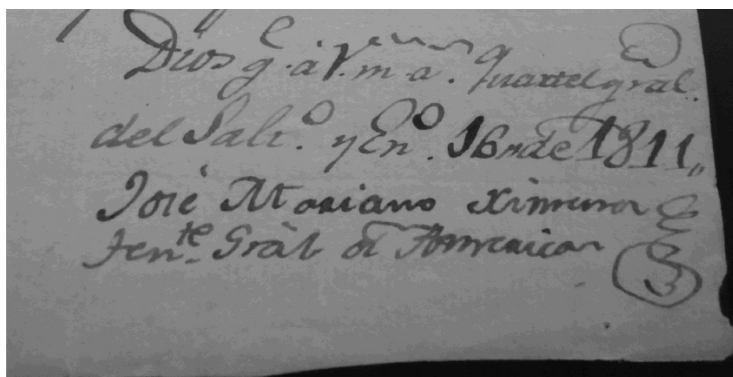 Dios g.e a V. m. a.s Quartel gral.
del Salt.o y En.o 16 de 1811,,
José Mariano Ximenez
Ten.te Gràl de America